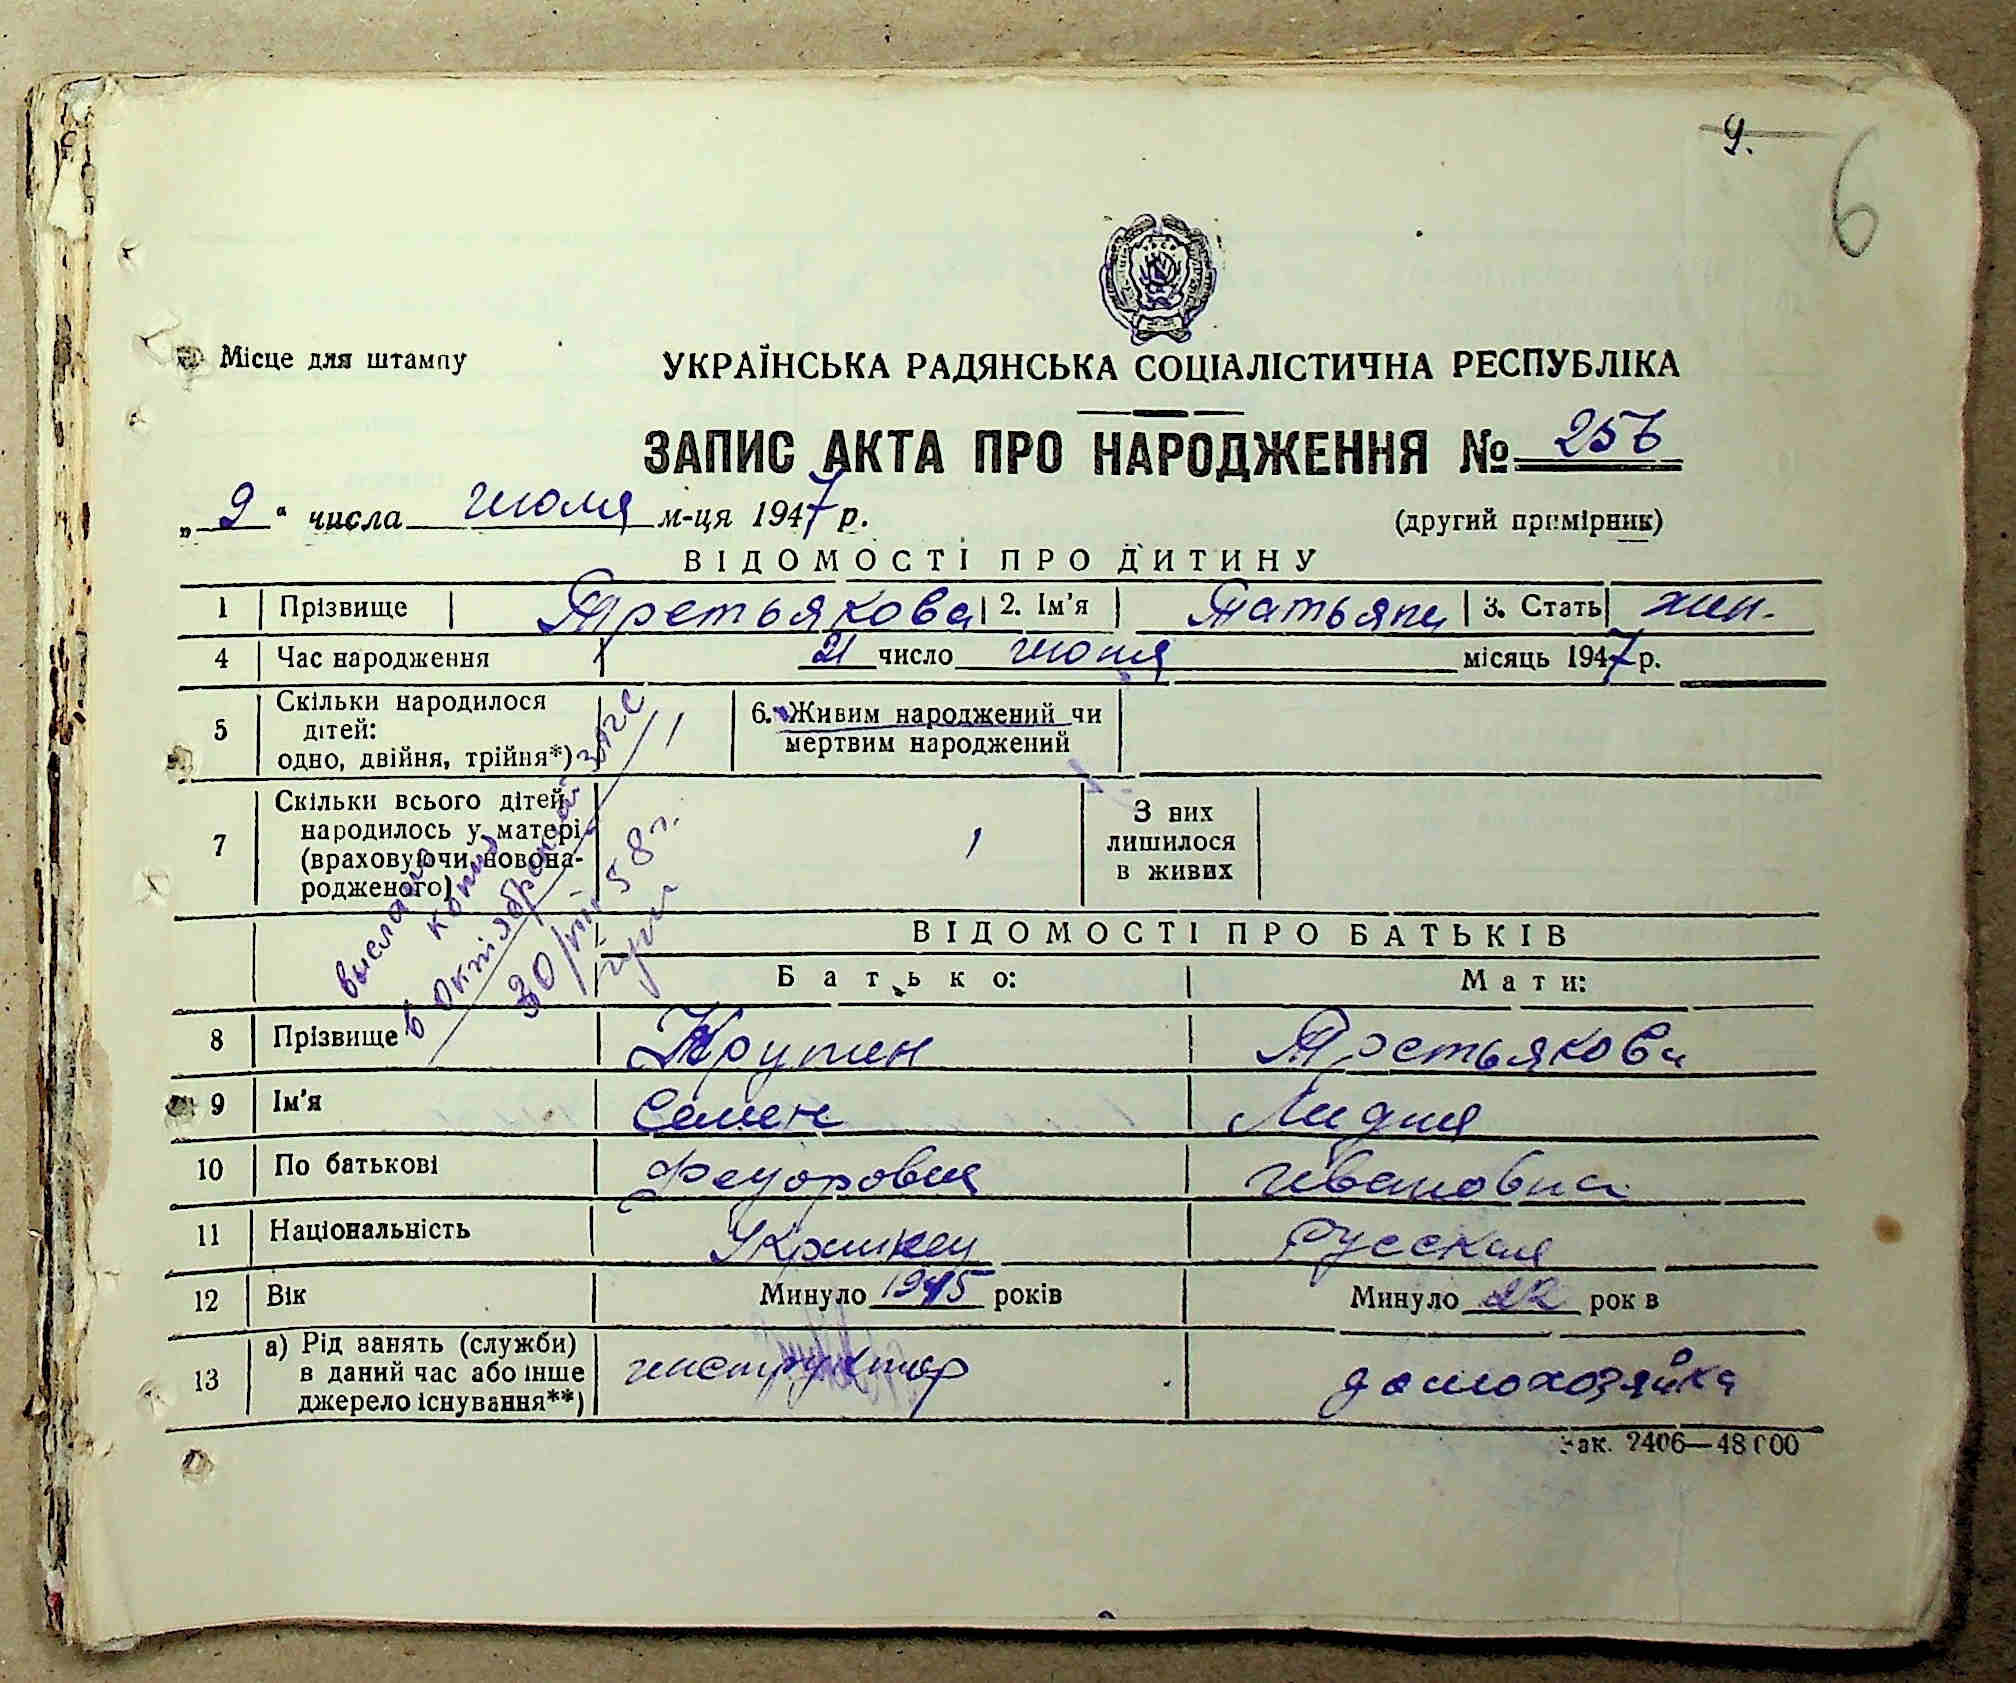 9.
6
Місце для штампу
УКРАЇНСЬКА РАДЯНСЬКА СОЦІАЛІСТИЧНА РЕСПУБЛІКА
ЗАПИС АКТА ПРО НАРОДЖЕННЯ № 256
„ 9 “ числа июля м-ця 1947 р.
(другий примірник)
ВІДОМОСТІ ПРО ДИТИНУ
1 Прізвище Третьякова 2. Ім'я Татьяна 3. Стать жен.
4 Час народження 21 число июня місяць 1947 р.
5 Скільки народилося дітей: одно, двійня, трійня*) 1 6. Живим народжений чи мертвим народжений
7 Скільки всього дітей народилось у матері (враховуючи новонародженого) 1 З них лишилося в живих
выслана копия
в Октябрьский загс
30/VIII 58 г.
ВІДОМОСТІ ПРО БАТЬКІВ
Батько: Мати:
8 Прізвище Третьякова
9 Ім'я Семен Лидия
10 По батькові Федорович Ивановна
11 Національність Украинец Русская
12 Вік Минуло 1915 років Минуло 22 рок в
13 а) Рід занять (служби) в даний час або інше джерело існування**) инструктор домохозяйка
Зак. 2406—48000